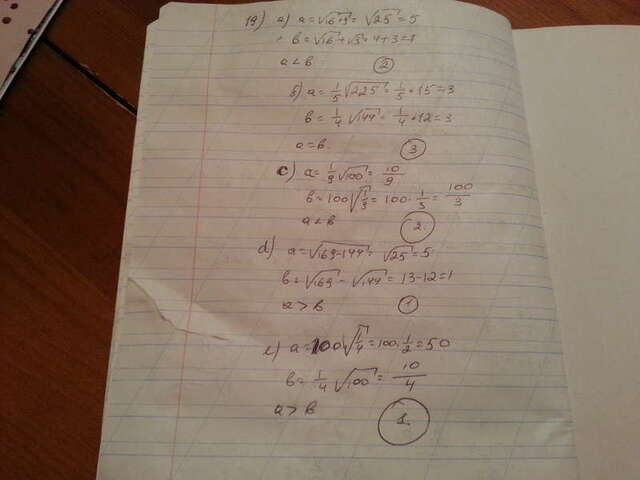 19) a) a=√16+9 = √25 = 5
b=√16+√9=4+3=7
a<b (2)
б) a=1/5√225=1/5*15=3
b=1/4√144=1/4*12=3
a=b. (3)
c) a=1/9√100=10/9
b=100√1/9=100·1/3=100/3
a<b (2.)
d) a=√169-144=√25=5
b=√169-√144=13-12=1
a>b (1)
e) a=100√1/4=100·1/2=50
b=1/4√100=10/4
a>b (1.)